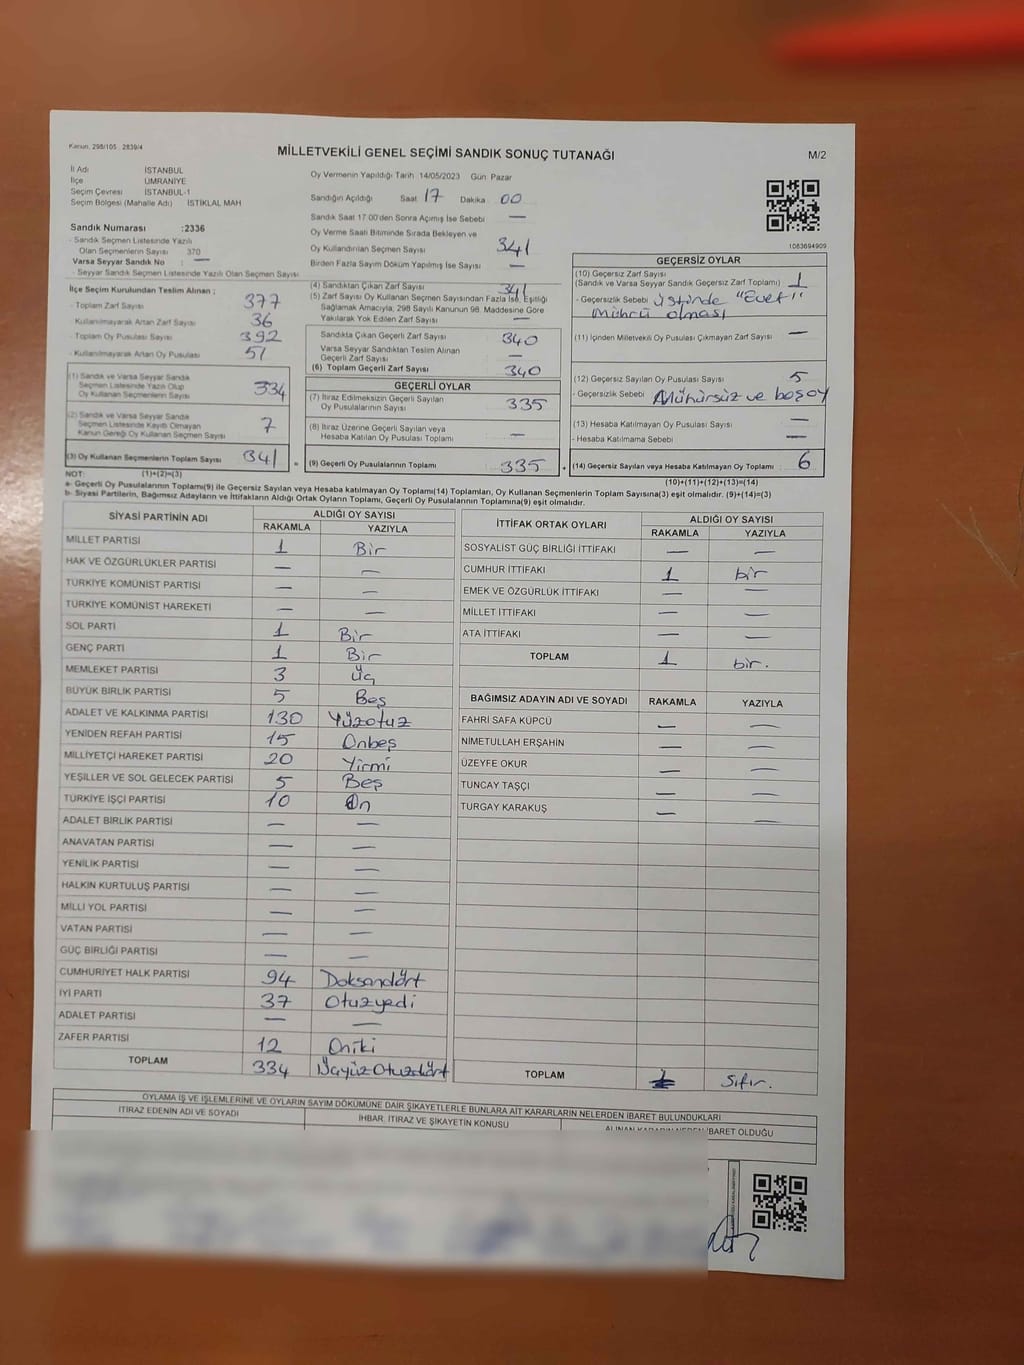 Kanun. 298/105 2839/4
MİLLETVEKİLİ GENEL SEÇİMİ SANDIK SONUÇ TUTANAĞI
M/2
İl Adı İSTANBUL
İlçe ÜMRANİYE
Seçim Çevresi İSTANBUL-1
Seçim Bölgesi (Mahalle Adı) İSTİKLAL MAH
Sandık Numarası :2336
- Sandık Seçmen Listesinde Yazılı
Olan Seçmenlerin Sayısı 370
Varsa Seyyar Sandık No : —
- Seyyar Sandık Seçmen Listesinde Yazılı Olan Seçmen Sayısı
İlçe Seçim Kurulundan Teslim Alınan ;
- Toplam Zarf Sayısı 377
- Kullanılmayarak Artan Zarf Sayısı 36
- Toplam Oy Pusulası Sayısı 392
- Kullanılmayarak Artan Oy Pusulası 51
(1) Sandık ve Varsa Seyyar Sandık
Seçmen Listesinde Yazılı Olup
Oy Kullanan Seçmenlerin Sayısı 334
(2) Sandık ve Varsa Seyyar Sandık
Seçmen Listesinde Kayıtlı Olmayan
Kanun Gereği Oy Kullanan Seçmen Sayısı 7
(3) Oy Kullanan Seçmenlerin Toplam Sayısı 341
NOT: (1)+(2)=(3)
Oy Vermenin Yapıldığı Tarih 14/05/2023 Gün: Pazar
Sandığın Açıldığı Saat 17 Dakika 00
Sandık Saat 17:00'den Sonra Açılmış İse Sebebi —
Oy Verme Saati Bitiminde Sırada Bekleyen ve
Oy Kullandırılan Seçmen Sayısı 341
Birden Fazla Sayım Döküm Yapılmış İse Sayısı —
(4) Sandıktan Çıkan Zarf Sayısı 341
(5) Zarf Sayısı Oy Kullanan Seçmen Sayısından Fazla İse, Eşitliği
Sağlamak Amacıyla, 298 Sayılı Kanunun 98. Maddesine Göre
Yakılarak Yok Edilen Zarf Sayısı —
Sandıkta Çıkan Geçerli Zarf Sayısı 340
Varsa Seyyar Sandıktan Teslim Alınan
Geçerli Zarf Sayısı —
(6) Toplam Geçerli Zarf Sayısı 340
GEÇERLİ OYLAR
(7) İtiraz Edilmeksizin Geçerli Sayılan
Oy Pusulalarının Sayısı 335
(8) İtiraz Üzerine Geçerli Sayılan veya
Hesaba Katılan Oy Pusulası Toplamı —
= (9) Geçerli Oy Pusulalarının Toplamı 335 +
1083694909
GEÇERSİZ OYLAR
(10) Geçersiz Zarf Sayısı
(Sandık ve Varsa Seyyar Sandık Geçersiz Zarf Toplamı) 1
- Geçersizlik Sebebi üstünde "Evet"
Mührü olması
(11) İçinden Milletvekili Oy Pusulası Çıkmayan Zarf Sayısı —
(12) Geçersiz Sayılan Oy Pusulası Sayısı 5
- Geçersizlik Sebebi Mühürsüz ve boşoy
(13) Hesaba Katılmayan Oy Pusulası Sayısı —
- Hesaba Katılmama Sebebi —
(14) Geçersiz Sayılan veya Hesaba Katılmayan Oy Toplamı 6
(10)+(11)+(12)+(13)=(14)
a- Geçerli Oy Pusulalarının Toplamı(9) ile Geçersiz Sayılan veya Hesaba Katılmayan Oy Toplamı(14) Toplamları, Oy Kullanan Seçmenlerin Toplam Sayısına(3) eşit olmalıdır. (9)+(14)=(3)
b- Siyasi Partilerin, Bağımsız Adayların ve İttifakların Aldığı Ortak Oyların Toplamı, Geçerli Oy Pusulalarının Toplamına(9) eşit olmalıdır.
SİYASİ PARTİNİN ADI ALDIĞI OY SAYISI
RAKAMLA YAZIYLA
MİLLET PARTİSİ 1 Bir
HAK VE ÖZGÜRLÜKLER PARTİSİ — —
TÜRKİYE KOMÜNİST PARTİSİ — —
TÜRKİYE KOMÜNİST HAREKETİ — —
SOL PARTİ 1 Bir
GENÇ PARTİ 1 Bir
MEMLEKET PARTİSİ 3 Üç
BÜYÜK BİRLİK PARTİSİ 5 Beş
ADALET VE KALKINMA PARTİSİ 130 Yüzotuz
YENİDEN REFAH PARTİSİ 15 Onbeş
MİLLİYETÇİ HAREKET PARTİSİ 20 Yirmi
YEŞİLLER VE SOL GELECEK PARTİSİ 5 Beş
TÜRKİYE İŞÇİ PARTİSİ 10 On
ADALET BİRLİK PARTİSİ — —
ANAVATAN PARTİSİ — —
YENİLİK PARTİSİ — —
HALKIN KURTULUŞ PARTİSİ — —
MİLLİ YOL PARTİSİ — —
VATAN PARTİSİ — —
GÜÇ BİRLİĞİ PARTİSİ — —
CUMHURİYET HALK PARTİSİ 94 Doksandört
İYİ PARTİ 37 Otuzyedi
ADALET PARTİSİ — —
ZAFER PARTİSİ 12 Oniki
TOPLAM 334 Üçyüz Otuzdört
İTTİFAK ORTAK OYLARI ALDIĞI OY SAYISI
RAKAMLA YAZIYLA
SOSYALİST GÜÇ BİRLİĞİ İTTİFAKI — —
CUMHUR İTTİFAKI 1 bir
EMEK VE ÖZGÜRLÜK İTTİFAKI — —
MİLLET İTTİFAKI — —
ATA İTTİFAKI — —
TOPLAM 1 bir.
BAĞIMSIZ ADAYIN ADI VE SOYADI RAKAMLA YAZIYLA
FAHRİ SAFA KÜPCÜ — —
NİMETULLAH ERŞAHİN — —
ÜZEYFE OKUR — —
TUNCAY TAŞÇI — —
TURGAY KARAKUŞ — —
TOPLAM sıfır.
OYLAMA İŞ VE İŞLEMLERİNE VE OYLARIN SAYIM DÖKÜMÜNE DAİR ŞİKAYETLERLE BUNLARA AİT KARARLARIN NELERDEN İBARET BULUNDUKLARI
İTİRAZ EDENİN ADI VE SOYADI İHBAR, İTİRAZ VE ŞİKAYETİN KONUSU ALINAN KARARIN NEDEN İBARET OLDUĞU